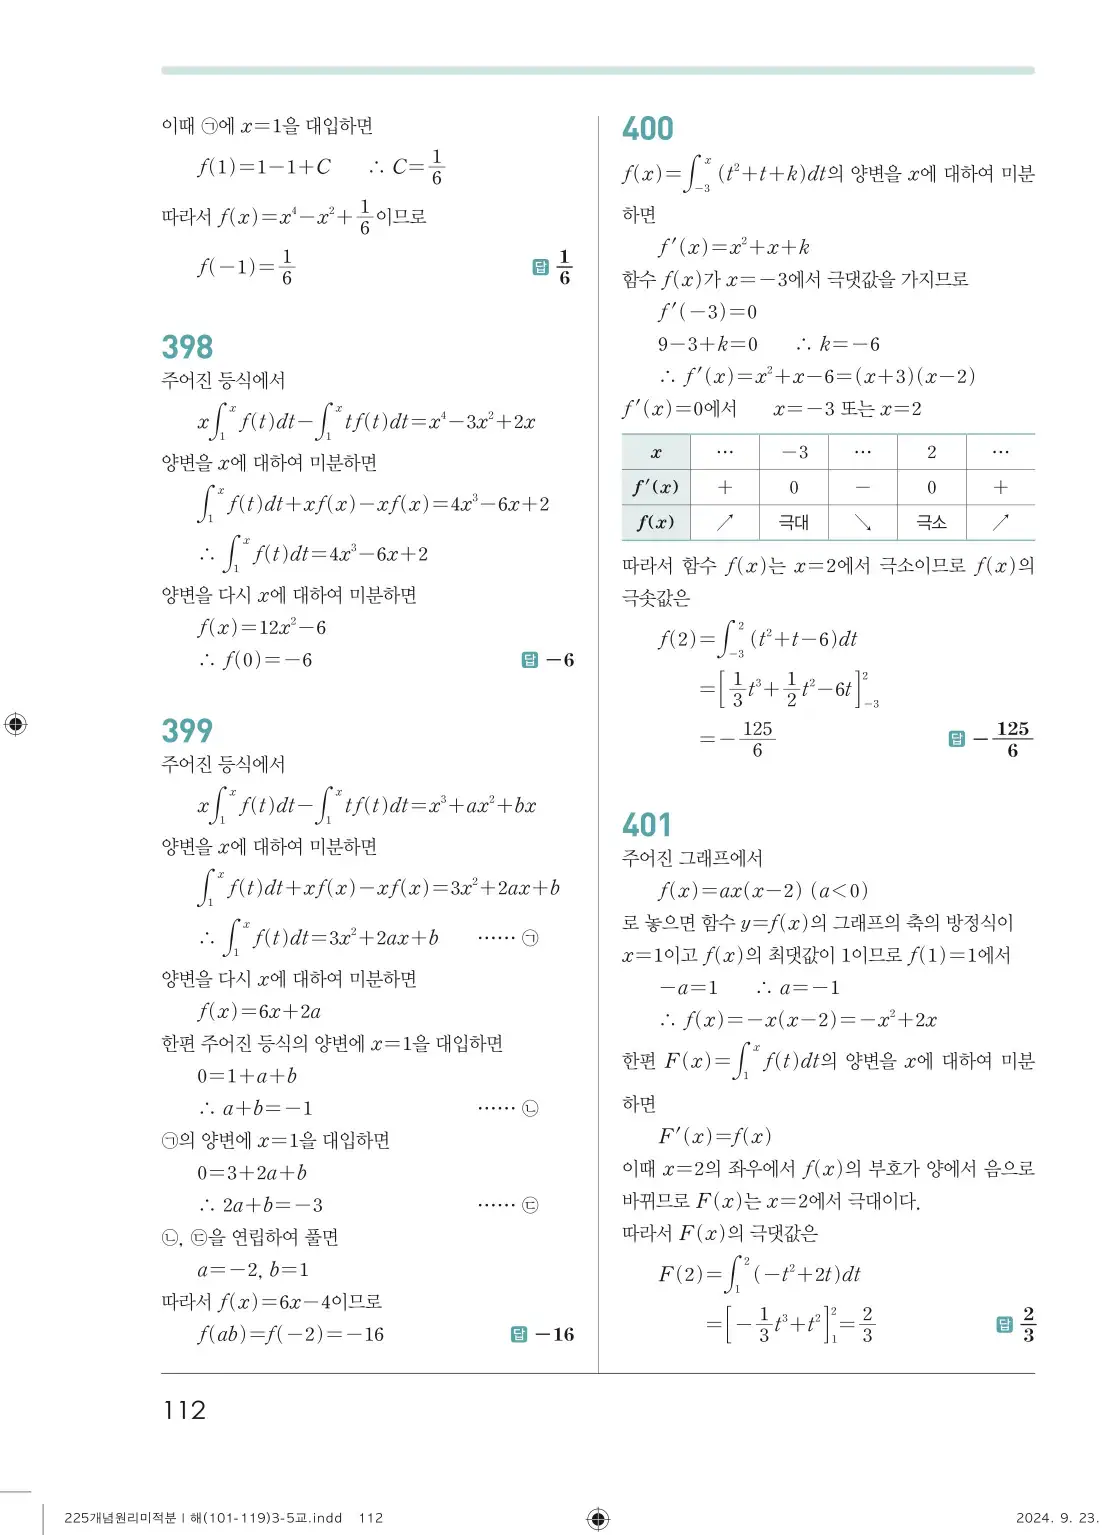 이때 ㉠에 x=1을 대입하면
f(1)=1-1+C ∴ C=1/6
따라서 f(x)=x⁴-x²+1/6이므로
f(-1)=1/6 답 1/6
398
주어진 등식에서
x∫₁ˣ f(t)dt-∫₁ˣ tf(t)dt=x⁴-3x²+2x
양변을 x에 대하여 미분하면
∫₁ˣ f(t)dt+xf(x)-xf(x)=4x³-6x+2
∴ ∫₁ˣ f(t)dt=4x³-6x+2
양변을 다시 x에 대하여 미분하면
f(x)=12x²-6
∴ f(0)=-6 답 -6
399
주어진 등식에서
x∫₁ˣ f(t)dt-∫₁ˣ tf(t)dt=x³+ax²+bx
양변을 x에 대하여 미분하면
∫₁ˣ f(t)dt+xf(x)-xf(x)=3x²+2ax+b
∴ ∫₁ˣ f(t)dt=3x²+2ax+b ⋯⋯ ㉠
양변을 다시 x에 대하여 미분하면
f(x)=6x+2a
한편 주어진 등식의 양변에 x=1을 대입하면
0=1+a+b
∴ a+b=-1 ⋯⋯ ㉡
㉠의 양변에 x=1을 대입하면
0=3+2a+b
∴ 2a+b=-3 ⋯⋯ ㉢
㉡, ㉢을 연립하여 풀면
a=-2, b=1
따라서 f(x)=6x-4이므로
f(ab)=f(-2)=-16 답 -16
400
f(x)=∫₋₃ˣ (t²+t+k)dt의 양변을 x에 대하여 미분
하면
f'(x)=x²+x+k
함수 f(x)가 x=-3에서 극댓값을 가지므로
f'(-3)=0
9-3+k=0 ∴ k=-6
∴ f'(x)=x²+x-6=(x+3)(x-2)
f'(x)=0에서 x=-3 또는 x=2
x ⋯ -3 ⋯ 2 ⋯
f'(x) + 0 - 0 +
f(x) ↗ 극대 ↘ 극소 ↗
따라서 함수 f(x)는 x=2에서 극소이므로 f(x)의
극솟값은
f(2)=∫₋₃² (t²+t-6)dt
=[1/3t³+1/2t²-6t]₋₃²
=-125/6 답 -125/6
401
주어진 그래프에서
f(x)=ax(x-2) (a<0)
로 놓으면 함수 y=f(x)의 그래프의 축의 방정식이
x=1이고 f(x)의 최댓값이 1이므로 f(1)=1에서
-a=1 ∴ a=-1
∴ f(x)=-x(x-2)=-x²+2x
한편 F(x)=∫₁ˣ f(t)dt의 양변을 x에 대하여 미분
하면
F'(x)=f(x)
이때 x=2의 좌우에서 f(x)의 부호가 양에서 음으로
바뀌므로 F(x)는 x=2에서 극대이다.
따라서 F(x)의 극댓값은
F(2)=∫₁² (-t²+2t)dt
=[-1/3t³+t²]₁²=2/3 답 2/3
112
225개념원리미적분Ⅰ해(101-119)3-5교.indd 112 2024. 9. 23.